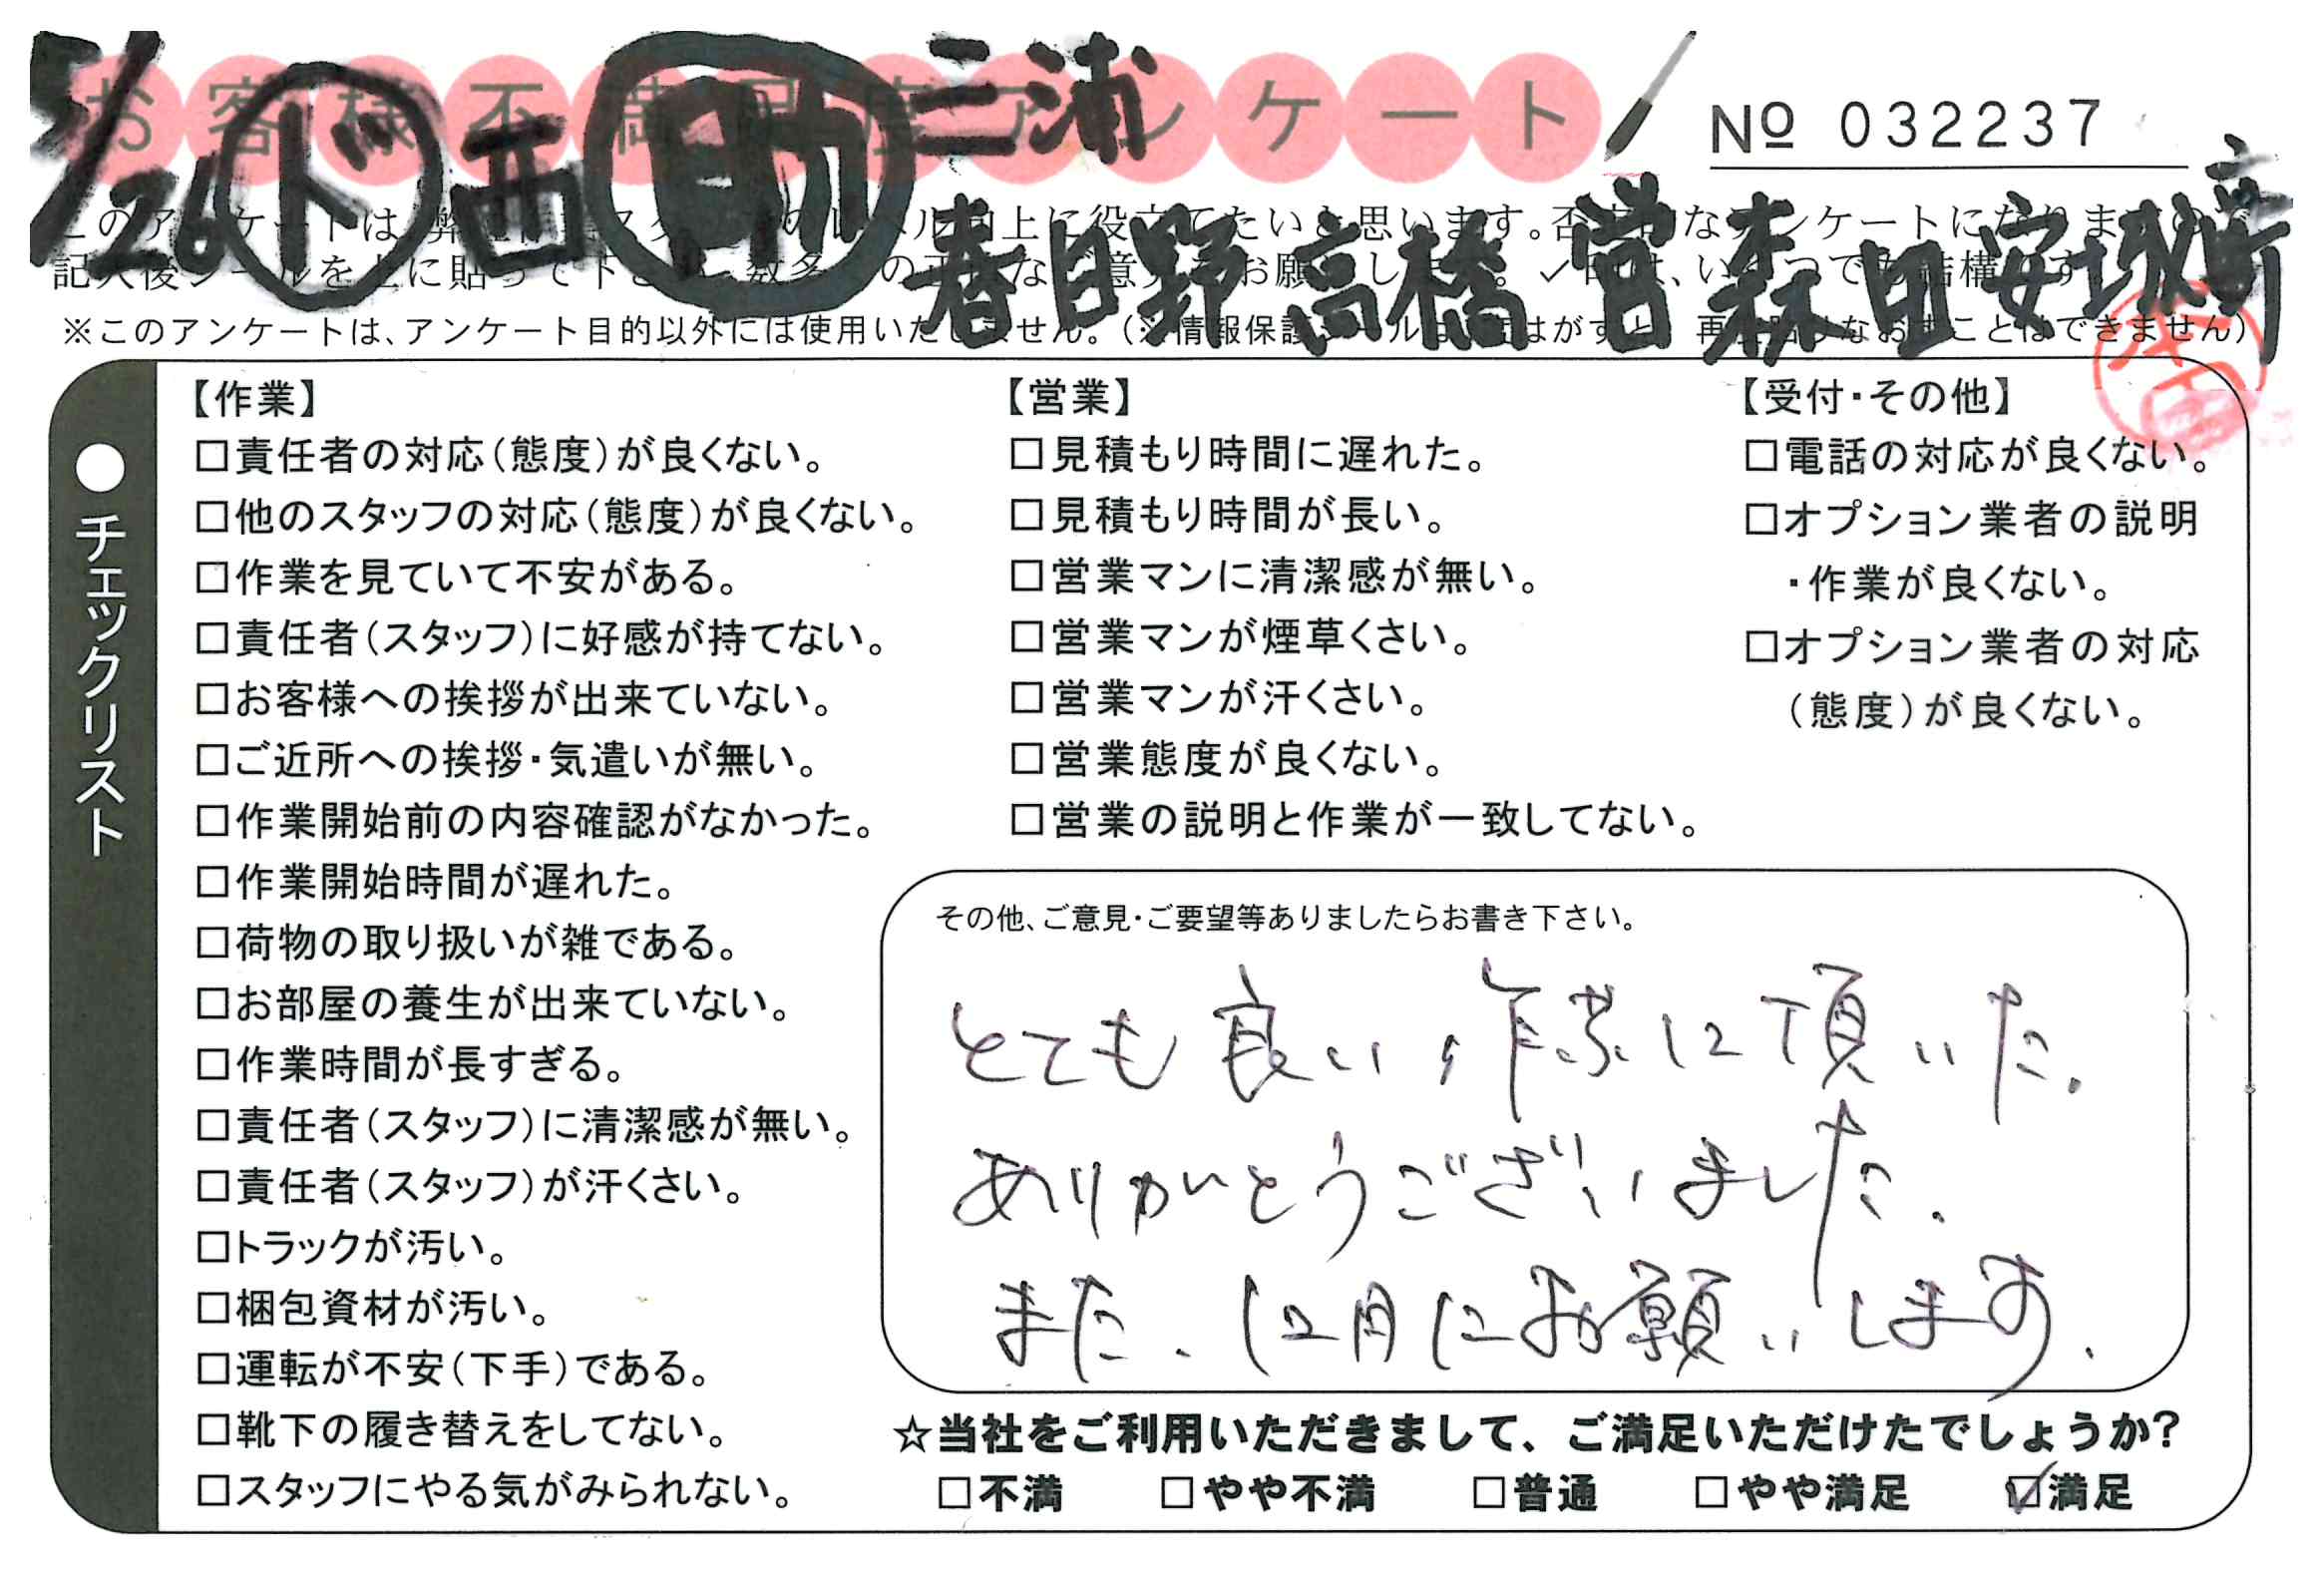 お客様不満足度アンケート
№ 032237
5/26 ド 西 助 三浦
春日野 高橋 営 森田 安城
※このアンケートは、アンケート目的以外には使用いたしません。
●チェックリスト
【作業】
□責任者の対応(態度)が良くない。
□他のスタッフの対応(態度)が良くない。
□作業を見ていて不安がある。
□責任者(スタッフ)に好感が持てない。
□お客様への挨拶が出来ていない。
□ご近所への挨拶・気遣いが無い。
□作業開始前の内容確認がなかった。
□作業開始時間が遅れた。
□荷物の取り扱いが雑である。
□お部屋の養生が出来ていない。
□作業時間が長すぎる。
□責任者(スタッフ)に清潔感が無い。
□責任者(スタッフ)が汗くさい。
□トラックが汚い。
□梱包資材が汚い。
□運転が不安(下手)である。
□靴下の履き替えをしてない。
□スタッフにやる気がみられない。
【営業】
□見積もり時間に遅れた。
□見積もり時間が長い。
□営業マンに清潔感が無い。
□営業マンが煙草くさい。
□営業マンが汗くさい。
□営業態度が良くない。
□営業の説明と作業が一致してない。
【受付・その他】
□電話の対応が良くない。
□オプション業者の説明
・作業が良くない。
□オプション業者の対応
(態度)が良くない。
その他、ご意見・ご要望等ありましたらお書き下さい。
とても良い作業に頂いた。
ありがとうございました。
また、12月にお願いします。
☆当社をご利用いただきまして、ご満足いただけたでしょうか?
□不満 □やや不満 □普通 □やや満足 ☑満足